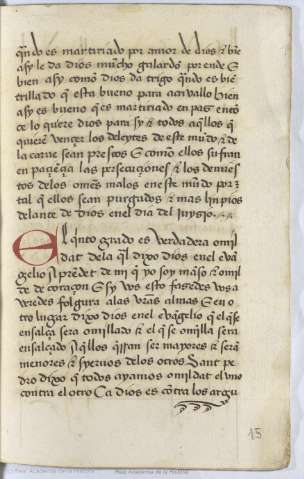 qndo es martiriado por amor de dios & bie
asy le da dios mucho galardõ por ende S
bien asy como dios da trigo qndo es bie
trillado q esta bueno para acavallo bien
asy es bueno q es martiriado en pas entõ
ce lo quere dios para sy & todos aqllos q
quere vençer los deleytes de este mũdo & de
la carne sean prestos S como ellos sufran
en paçeçia las persecuçiones & los denues
tos delos omẽs malos en este mũdo por
tal q ellos sean purgados & mas linpios
delante de dios en el dia del juysio
El qnto grado es verdadera omil
dat dela ql dixo dios en el eva
gelio si prẽdet de mi q yo soy mãso & omil
de de coraçon S sy vos esto fasedes vos a
veredes folgura a las vrãs almas S en o
tro lugar dixo dios en el evãgelio q el qse
ensalça sera omillado & el q se omilla sera
ensalçado si qllos qsieran ser mayores & serã
menores & syervos de los otros Sant pe
dro dixo q todos ayamos omildat el vno
contra el otro Ca dios es cõtra los argu
15
Real Academia de la Historia